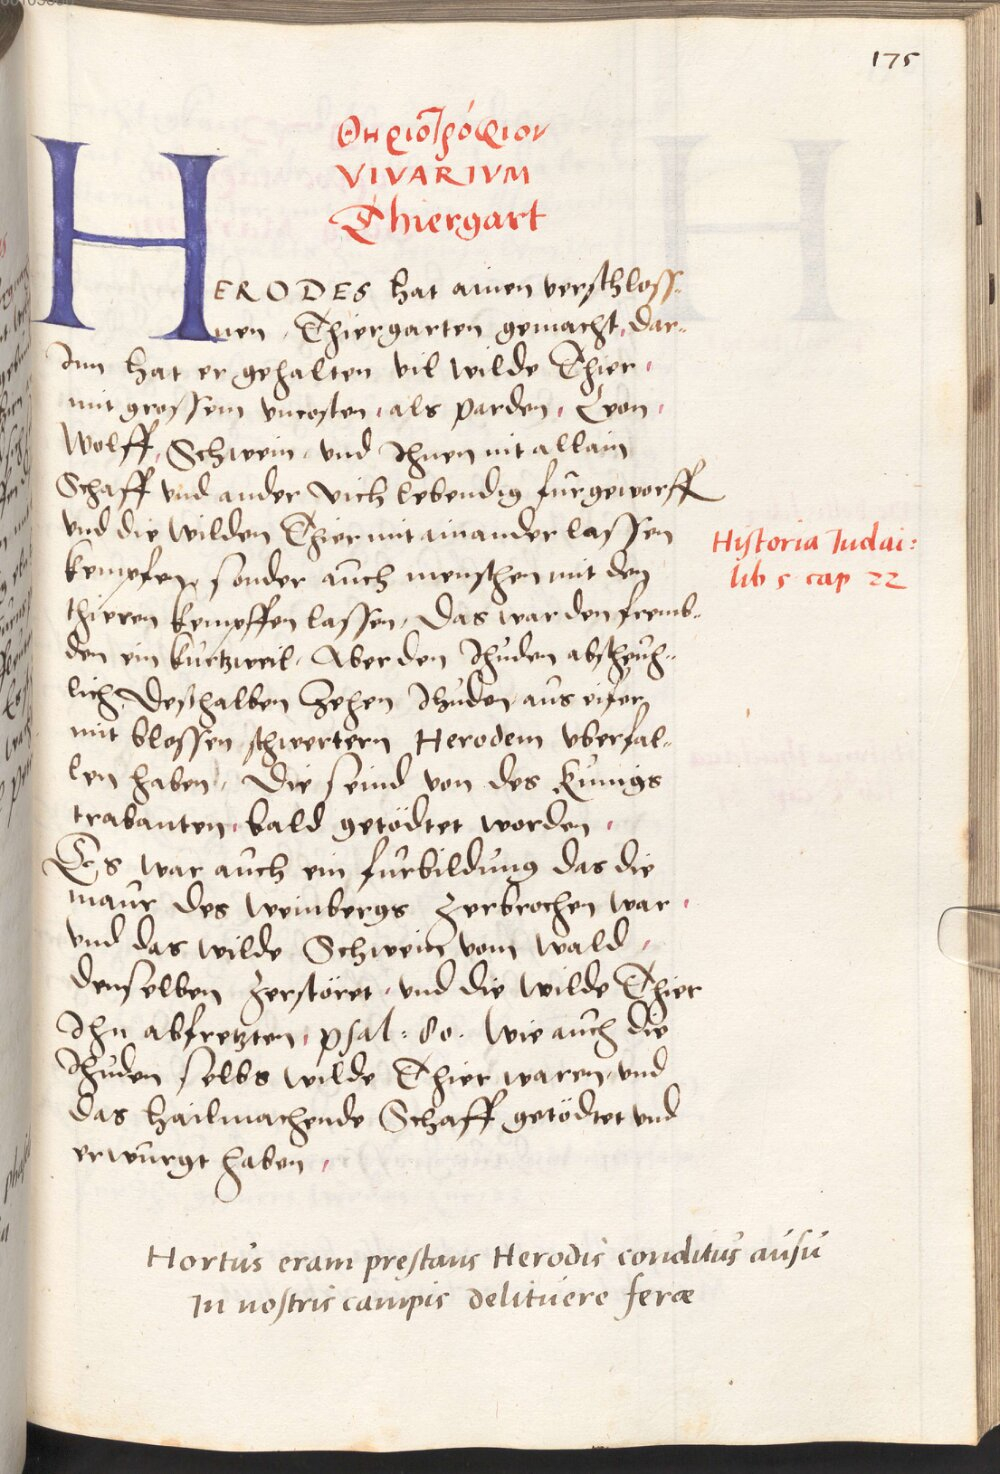 175
Θηριοτρόφιον
VIVARIVM
Thiergart
HERODES hat ainen verschloss-
nen, Thiergarten gemacht, dar-
Inn hat er gehalten vil wilde Thier,
mit grossem vncosten, als Parden, Leon,
Wolff, Schwein, vnd Ihnen nit allain
Schaff vnd ander Vich lebendig fürgeworff
vnd die wilden Thier mit ainander lassen
kempfen, sonder auch menschen mit den
thieren kempffen lassen, Das war den fremb-
den ein kurtzweil, Aber den Jhuden abscheüh-
lich, Deshalben Zehen Jhuden aus eifer
mit blossen schwertern Herodem vberfal-
len haben, Die seind von des Künigs
trabanten, bald getödtet worden,
Es war auch ein fürbildung das die
maur des Weinbergs zerbrochen war,
vnd das wilde Schwein vom wald,
denselben zerstöret, vnd die wilde Thier
Ihn abfretzten, psal: 80. Wie auch die
Jhuden selbs wilde Thier waren, vnd
das hailmachende Schaff getödtet vnd
erwürgt haben,
Historia Iudai:
lib 5 cap 22
Hortus eram prestans Herodis conditus ausu
In nostris campis delituere feræ